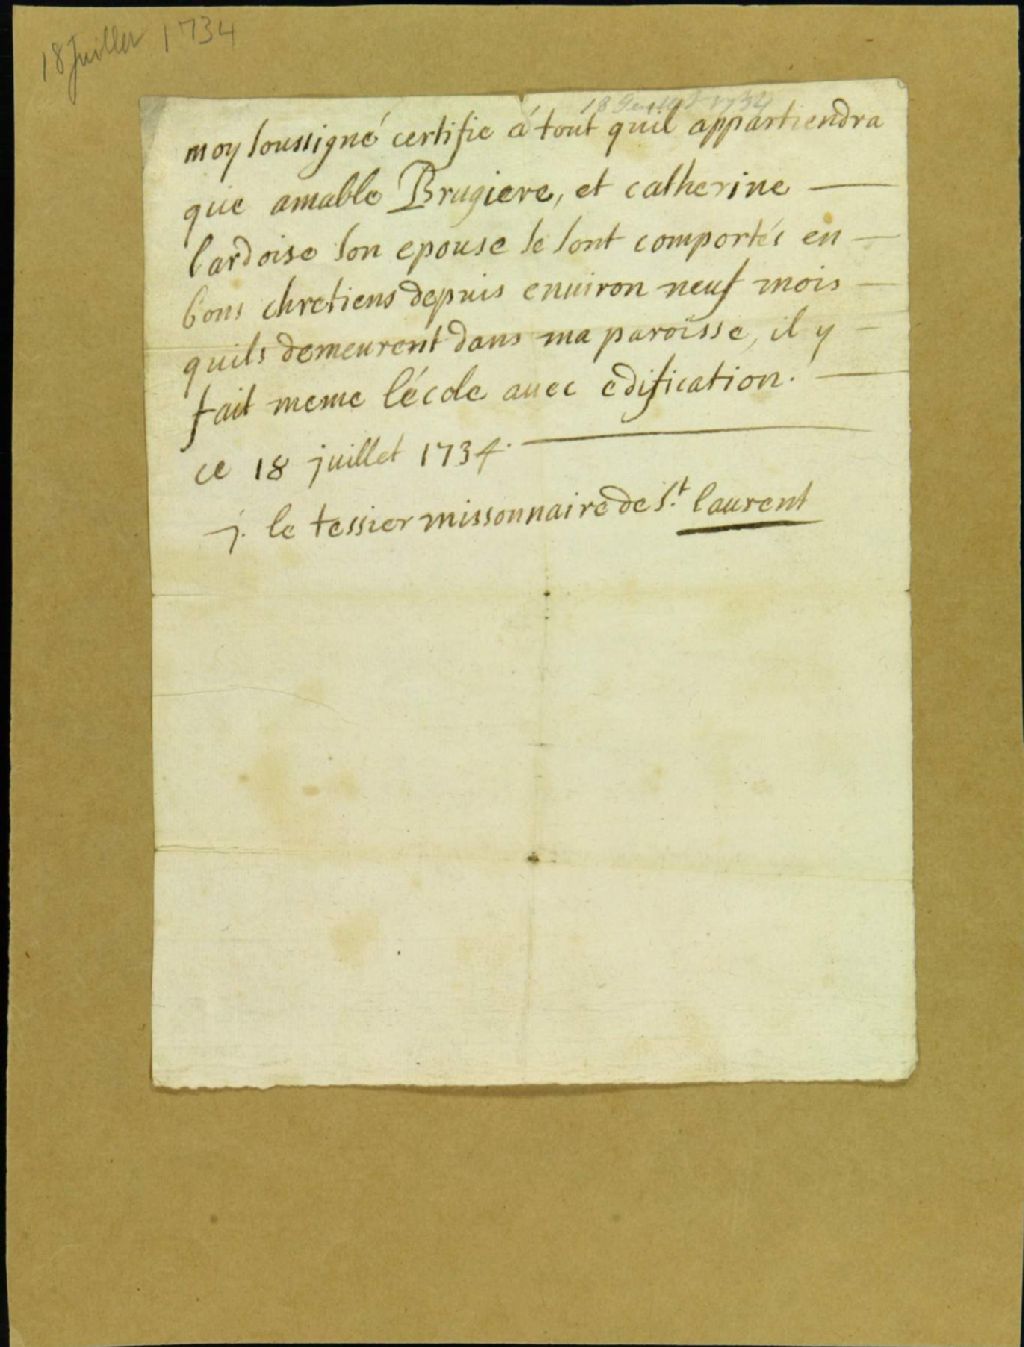 18 Juillet 1734
18 Juillet 1734
moy soussigné certifie á tout quil appartiendra
que amable Brugiere, et catherine
lardoise son epouse se sont comportés en
bons chretiens depuis enuiron neuf mois
quils demeurent dans ma paroisse, il y
fait meme l'école auec edification.
ce 18 juillet 1734.
j. le tessier missonnaire de St. laurent